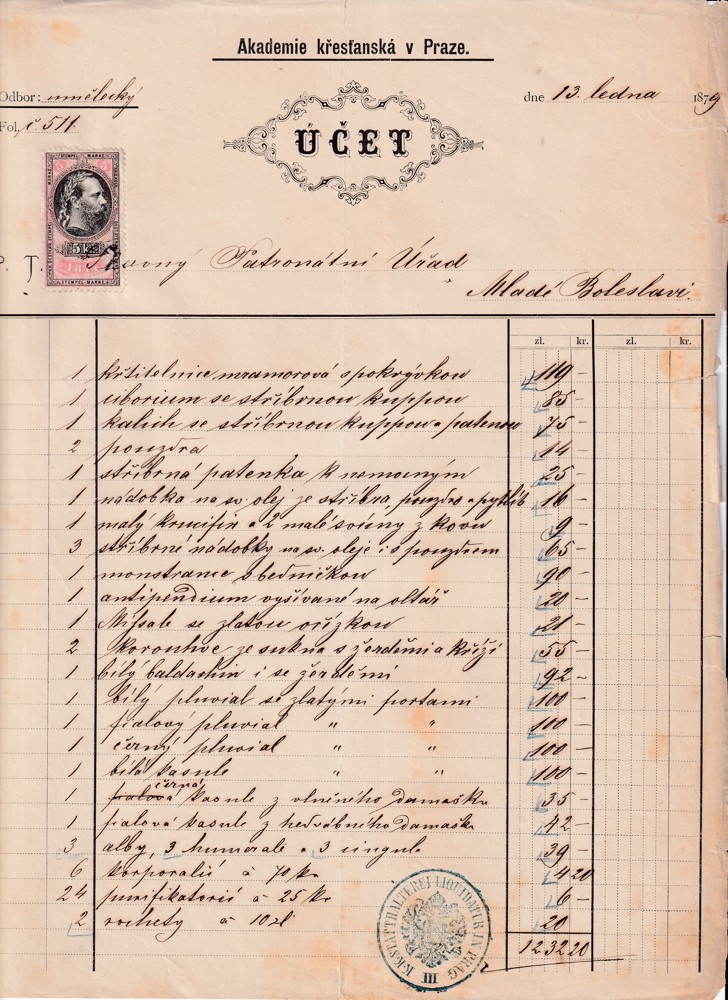 Akademie křesťanská v Praze.
Odbor: umělecký
dne 13. ledna 1879
Fol. č. 511.
ÚČET
STEMPEL-MARKE
5
STEMPEL-MARKE
P. T. Slavný Patronátní Úřad
Mladé Boleslavi.
zl. kr. zl. kr.
1 křtitelnice mramorová s pokrývkou 119 –
1 ciborium se stříbrnou kuppou 85 –
1 kalich se stříbrnou kuppou a patenou 75 –
2 pouzdra 14 –
1 stříbrná patenka k nemocným 25 –
1 nádobka na sv. olej ze stříbra, pouzdro a pytlík 16 –
1 malý krucifix a 2 malé svícny z kovu 9 –
3 stříbrné nádobky na sv. oleje i s pouzdrem 65 –
1 monstrance s bedničkou 90 –
1 antipendium vyšívané na oltář 20 –
1 Missale se zlatou ořízkou 21 –
2 Korouhve ze sukna s žerděmi a kříži 55 –
1 bílý baldachin i se žerděmi 92 –
1 bílý pluvial se zlatými portami 100 –
1 fialový pluvial " " 100 –
1 černý pluvial " " 100 –
1 bílá kasule " " 100 –
1 fialová černá kasule z vlněného damašku 35 –
1 fialová kasule z hedvábného damašk 42 –
3 alby, 3 humerale a 3 cingule 39 –
6 korporalií à 70 kr 4 20
24 purifikatorií à 25 kr 6 –
2 rochety à 10 zl 20
1232 20
K. K. STATTHALTEREI LIQUIDATUR IN PRAG
III